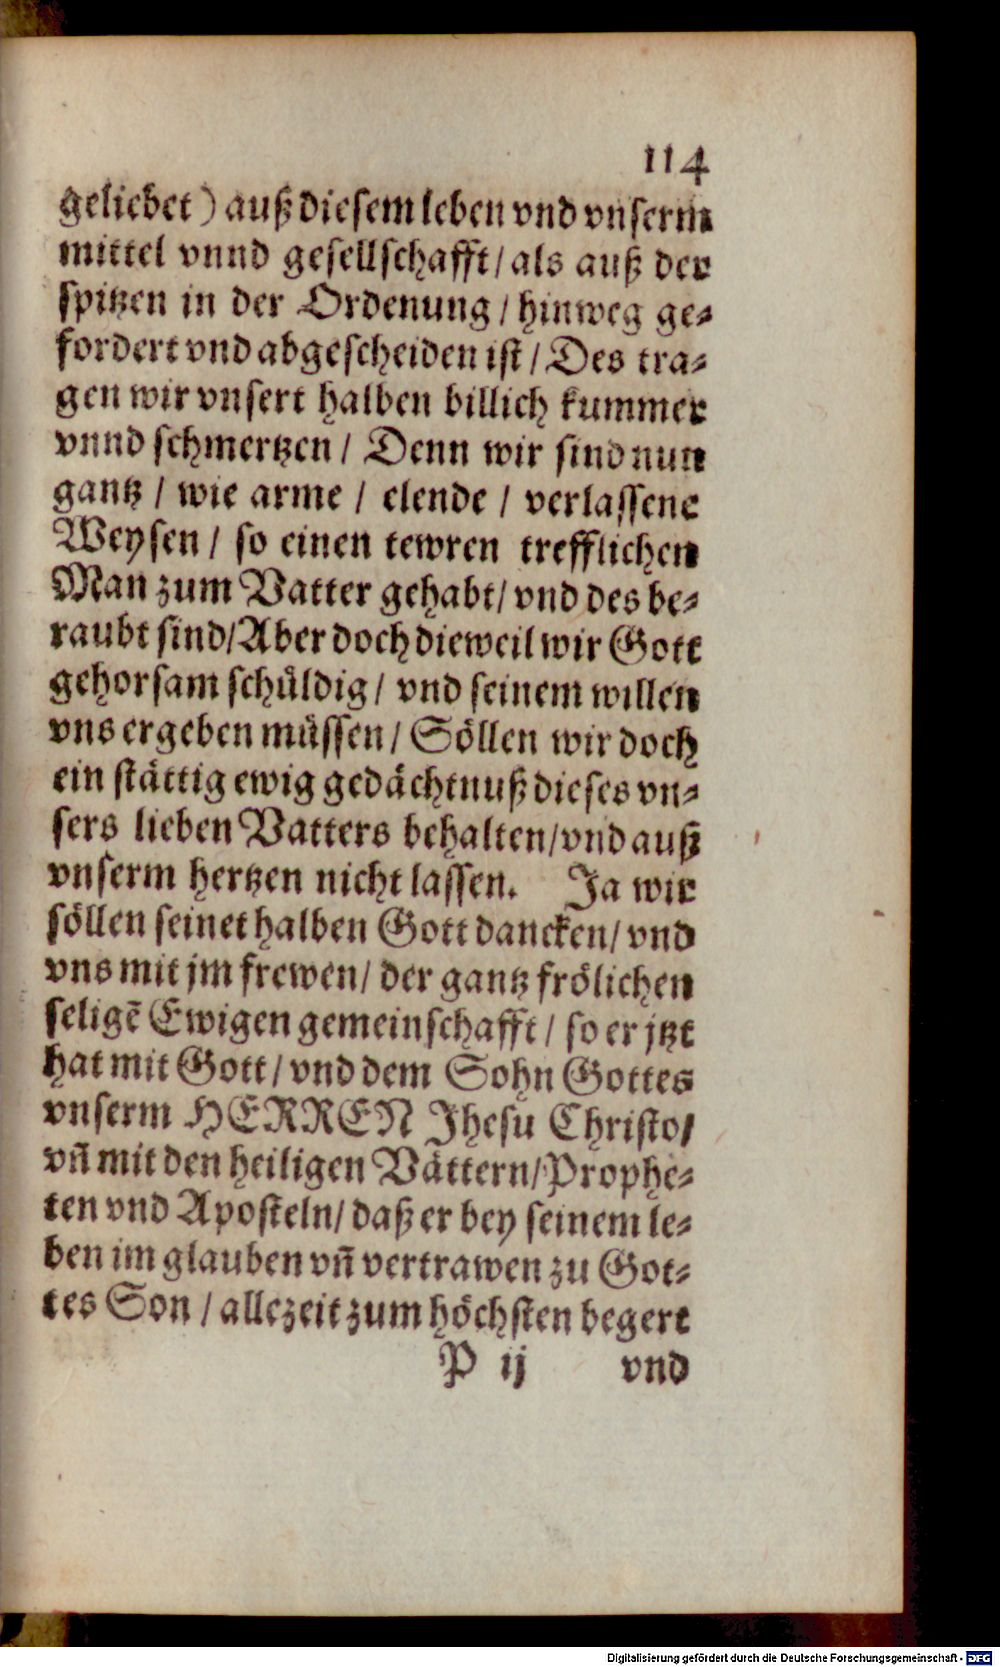 114
geliebet) auß diesem leben vnd vnserm
mittel vnnd gesellschafft/ als auß der
spitzen in der Ordenung/ hinweg ge-
fordert vnd abgescheiden ist/ Des tra-
gen wir vnsert halben billich kummer
vnnd schmertzen/ Denn wir sind nun
gantz/ wie arme/ elende/ verlassene
Weysen/ so einen tewren trefflichen
Man zum Vatter gehabt/ vnd des be-
raubt sind/ Aber doch dieweil wir Gott
gehorsam schüldig/ vnd seinem willen
vns ergeben müssen/ Söllen wir doch
ein stättig ewig gedächtnuß dieses vn-
sers lieben Vatters behalten/ vnd auß
vnserm hertzen nicht lassen. Ja wir
söllen seinet halben Gott dancken/ vnd
vns mit jm frewen/ der gantz frölichen
seligē Ewigen gemeinschafft/ so er jtzt
hat mit Gott/ vnd dem Sohn Gottes
vnserm HERREN Jhesu Christo/
vñ mit den heiligen Vättern/ Prophe-
ten vnd Aposteln/ daß er bey seinem le-
ben im glauben vñ vertrawen zu Got-
tes Son/ allezeit zum höchsten begert
P ij vnd
Digitalisierung gefördert durch die Deutsche Forschungsgemeinschaft - DFG